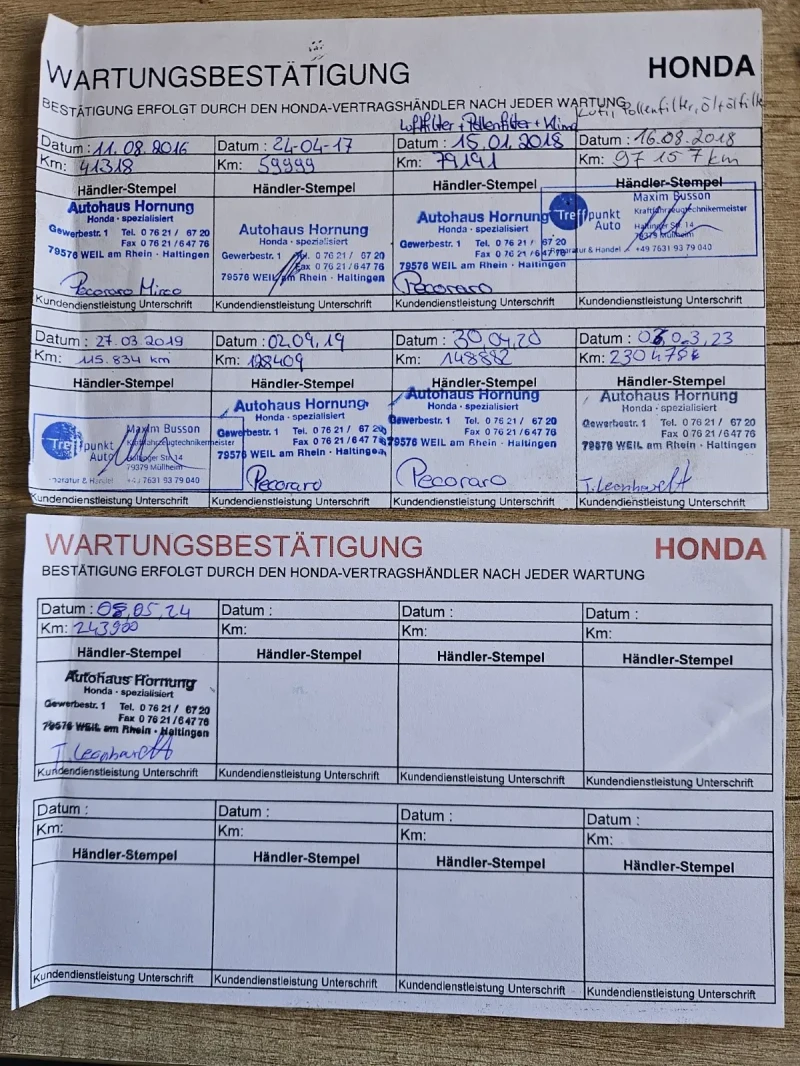 WARTUNGSBESTÄTIGUNG HONDA
BESTÄTIGUNG ERFOLGT DURCH DEN HONDA-VERTRAGSHÄNDLER NACH JEDER WARTUNG
Luftfilter + Pollenfilter + Klima
Pollenfilter, Öl+Ölfilter
Datum : 11.08.2016 Datum : 24-04-17 Datum : 15.01.2018 Datum : 16.08.2018
Km: 41318 Km: 59999 Km: 79191 Km: 97 157 km
Händler-Stempel Händler-Stempel Händler-Stempel Händler-Stempel
Autohaus Hornung
Honda - spezialisiert
Gewerbestr. 1 Tel. 0 76 21 / 67 20
Fax 0 76 21 / 6 47 76
79576 WEIL am Rhein - Haltingen
Pecoraro Mirco
Autohaus Hornung
Honda - spezialisiert
Gewerbestr. 1 Tel. 0 76 21 / 67 20
Fax 0 76 21 / 6 47 76
79576 WEIL am Rhein - Haltingen
Autohaus Hornung
Honda - spezialisiert
Gewerbestr. 1 Tel. 0 76 21 / 67 20
Fax 0 76 21 / 6 47 76
79576 WEIL am Rhein - Haltingen
Pecoraro
Treffpunkt Auto
Maxim Busson
Kraftfahrzeugtechnikermeister
79379 Müllheim
& Handel +49 7631 93 79 040
Kundendienstleistung Unterschrift Kundendienstleistung Unterschrift Kundendienstleistung Unterschrift Kundendienstleistung Unterschrift
Datum : 27.03.2019 Datum : 02.09.19 Datum : 30.04.20 Datum : 03.23
Km: 115.834 km Km: 128409 Km: 148882 Km: 230478
Händler-Stempel Händler-Stempel Händler-Stempel Händler-Stempel
Treffpunkt Auto
Maxim Busson
Kraftfahrzeugtechnikermeister
79379 Müllheim
& Handel 7631 93 79 040
Autohaus Hornung
Honda - spezialisiert
Gewerbestr. 1 Tel. 0 76 21 / 67 20
Fax 0 76 21 / 6 47 76
79576 WEIL am Rhein - Haltingen
Pecoraro
Autohaus Hornung
Honda - spezialisiert
Gewerbestr. 1 Tel. 0 76 21 / 67 20
Fax 0 76 21 / 6 47 76
79576 WEIL am Rhein - Haltingen
Pecoraro
Autohaus Hornung
Honda - spezialisiert
Gewerbestr. 1 Tel. 0 76 21 / 67 20
Fax 0 76 21 / 6 47 76
79576 WEIL am Rhein - Haltingen
T. Leonhardt
Kundendienstleistung Unterschrift Kundendienstleistung Unterschrift Kundendienstleistung Unterschrift Kundendienstleistung Unterschrift
WARTUNGSBESTÄTIGUNG HONDA
BESTÄTIGUNG ERFOLGT DURCH DEN HONDA-VERTRAGSHÄNDLER NACH JEDER WARTUNG
Datum : 08.05.24 Datum : Datum : Datum :
Km: 243900 Km: Km: Km:
Händler-Stempel Händler-Stempel Händler-Stempel Händler-Stempel
Autohaus Hornung
Honda - spezialisiert
Gewerbestr. 1 Tel. 0 76 21 / 67 20
Fax 0 76 21 / 6 47 76
79576 WEIL am Rhein - Haltingen
T. Leonhardt
Kundendienstleistung Unterschrift Kundendienstleistung Unterschrift Kundendienstleistung Unterschrift Kundendienstleistung Unterschrift
Datum : Datum : Datum : Datum :
Km: Km: Km: Km:
Händler-Stempel Händler-Stempel Händler-Stempel Händler-Stempel
Kundendienstleistung Unterschrift Kundendienstleistung Unterschrift Kundendienstleistung Unterschrift Kundendienstleistung Unterschrift